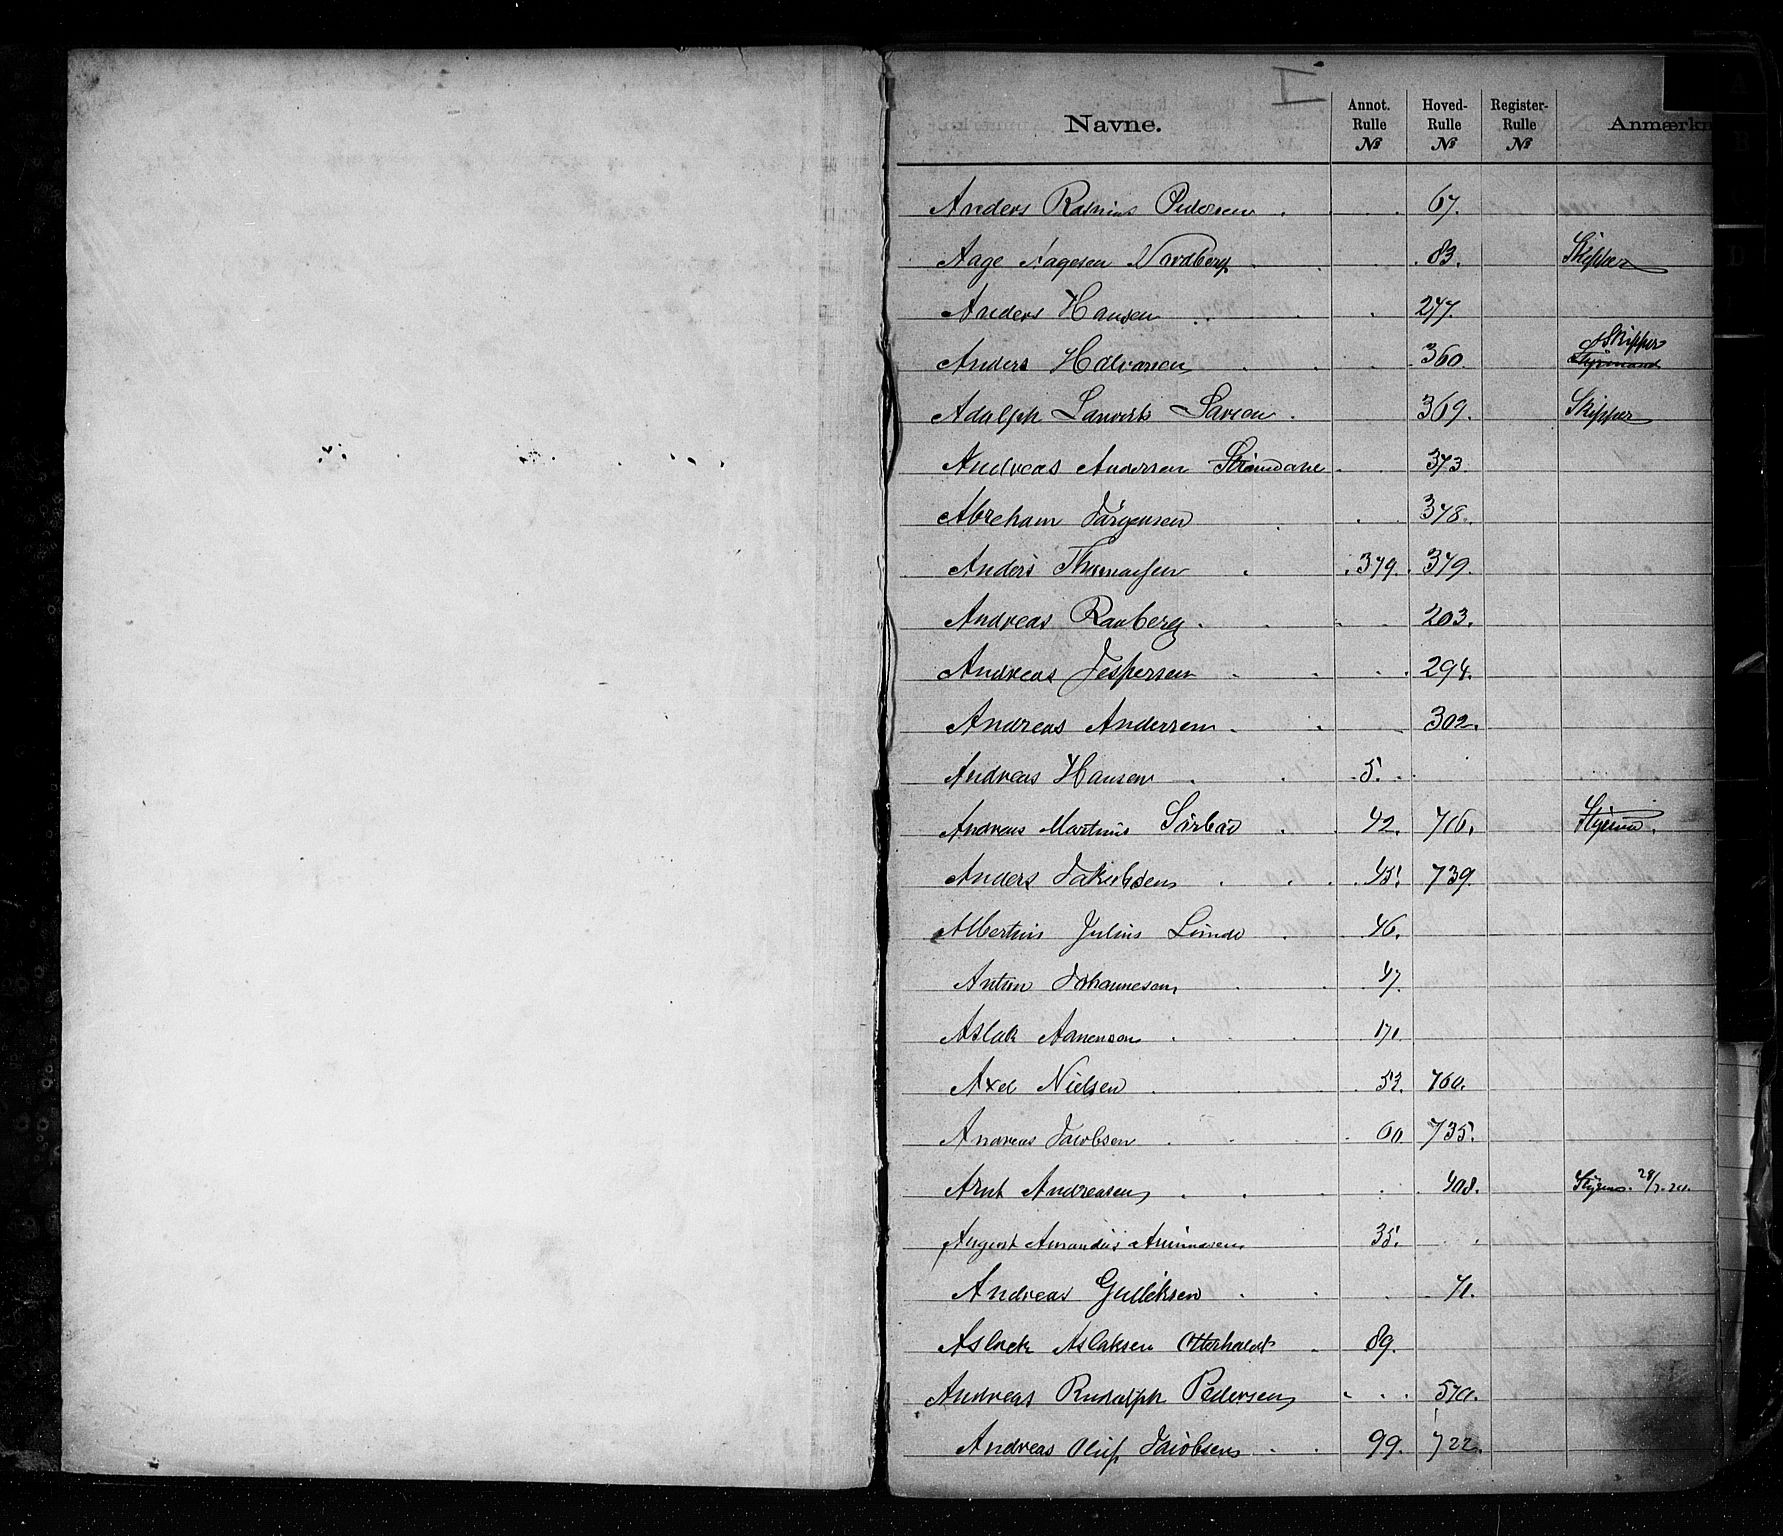 I
Navne. Annot. Rulle № Hoved- Rulle № Register- Rulle № Anmærkn
Anders Rasmus Pedersen . . . 67.
Aage Aagesen Nordberg . . . 83. Skipper
Anders Hansen . . . 247.
Anders Halvorsen . . . 360. Skipper Styrmand
Adolph Larsen . 369. Skipper
Andreas Andersen . . 373
Abraham Jörgensen . . . 348.
Anders Thomassen . . 379. 379.
Andreas Rauberg . . . 203.
Andreas Jespersen . . . 294.
Andreas Andersen . . . 302.
Andreas Hansen . . . 5. . .
Andreas Martinus . . 42. 716. Styrm.
Anders Jakobsen . . . 45. 739.
Albertius Julius Lunde . . 46.
Anton Johannesen . . 47.
Aslak . . 171.
Axel Nielsen . . . 760.
Andreas Jacobsen . . . 60. 735.
Arnt Andreasen . . . 408. Styrm. 28/
August Amandus 35. . .
Andreas Gulliksen . . . 71.
Aslack Aslaksen Otterholdt . 89.
Andreas Rudolph Pedersen . . . 570.
Andreas Oluf Jacobsen . . 99. 722.
A
B
D